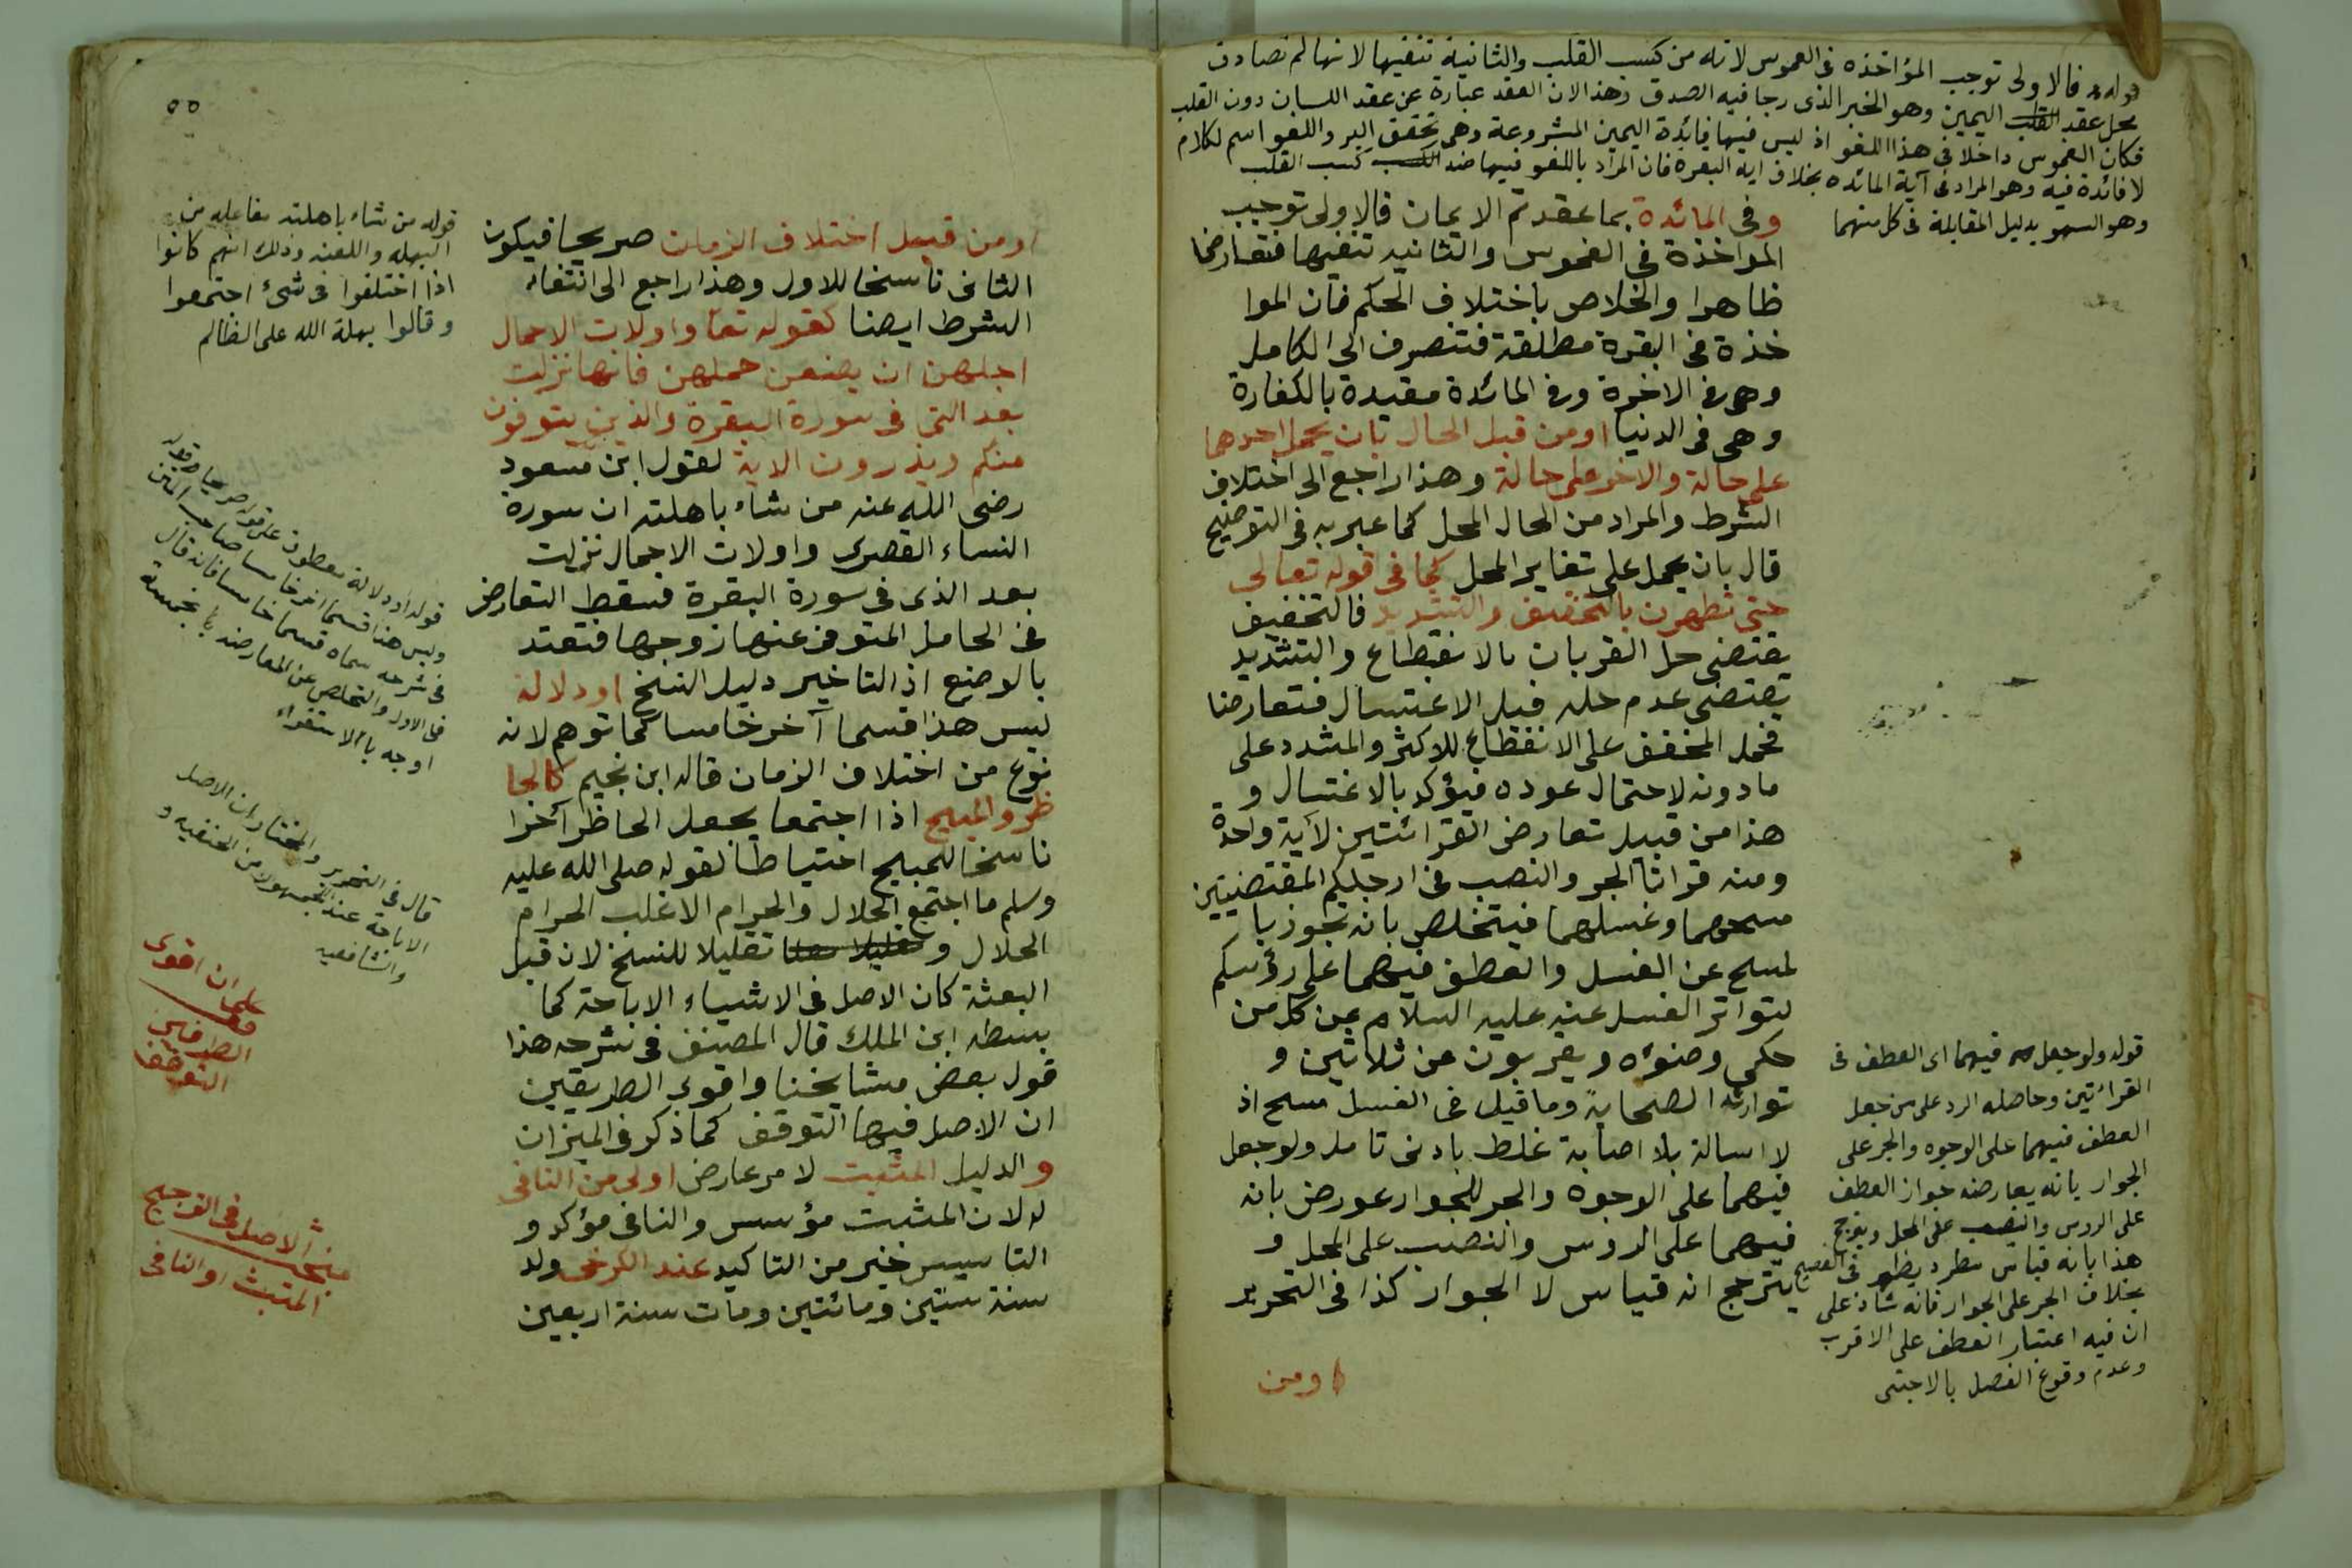 قوله فالاولى توجب المؤاخذه فى الغموس لانه من كسب القلب والثانية تنفيها لانها لم تصادق
محل عقد القلب اليمين وهو الخبر الذى رجا فيه الصدق وهذا لان العقد عبارة عن عقد اللسان دون القلب
فكان الغموس داخلا فى هذا اللغو اذ ليس فيها فائدة اليمين المشروعة وهى تحقق البر واللغو اسم لكلام
لا فائدة فيه وهو المراد فى آية المائده بخلاف ايه البقره فان المراد باللغو فيها ضد الكسب كسب القلب
وهو السهو بدليل المقابلة فى كل منهما
وفى المائدة بما عقدتم الايمان فالاولى توجب
المواخذة فى الغموس والثانيه تنفيها فتعارضا
ظاهرا والخلاص باختلاف الحكم فان الموا
خذة فى البقرة مطلقة فتنصرف الى الكامل
وهى فى الاخرة وفى المائدة مقيدة بالكفارة
وهى فى الدنيا او من قبل الحال بان يحمل احدهما
على حالة والاخر على حالة وهذا راجع الى اختلاف
الشرط والمراد من الحال المحل كما عبر به فى التوضيح
قال بان يحمل على تغاير المحل كما فى قوله تعالى
حتى تطهرن بالتخفيف والتشديد فالتخفيف
يقتضى حل القربان بالانقطاع والتشديد
يقتضى عدم حله قبل الاغتسال فتعارضا
فحمل المخفف على الانقطاع للاكثر والمشدد على
مادونه لاحتمال عوده فيؤكد بالاغتسال و
هذا من قبيل تعارض القرائتين لآية واحدة
ومنه قراتا الجر والنصب فى ارجلكم المقتضيتين
مسحهما وغسلهما فيتخلص بانه تجوز با
لمسح عن الغسل والعطف فيهما على رؤسكم
لتواتر الغسل عنه عليه السلام عن كل من
حكى وضوئه ويقربون من ثلاثين و
توارثه الصحابة وما قيل فى الغسل مسح اذ
لا اسالة بلا اصابة غلط بادنى تامل ولو جعل
فيهما على الوجوه والجر للجوار عورض بانه
فيهما على الروس والنصب على المحل و
يترجح انه قياس لا الجوار كذا فى التحرير
او من
قوله ولو جعل فيهما اى العطف فى
القرائتين وحاصله الرد على من جعل
العطف فيهما على الوجوه والجر على
الجوار بانه يعارضه جواز العطف
على الروس والنصب على المحل ويرجح
هذا بانه قياس مطرد يظهر فى الفصيح
بخلاف الجر على الجوار فانه شاذ على
ان فيه اعتبار العطف على الاقرب
وعدم وقوع الفصل بالاجنبى
٥٥
او من قبل اختلاف الزمان صريحا فيكون
الثانى ناسخا للاول وهذا راجع الى انتفاء
الشرط ايضا كقوله تعا واولات الاحمال
اجلهن ان يضعن حملهن فانها نزلت
بعد التى فى سورة البقرة والذين يتوفون
منكم ويذرون الاية لقول ابن مسعود
رضى الله عنه من شاء باهلته ان سورة
النساء القصرى واولات الاحمال نزلت
بعد الذى فى سورة البقرة فسقط التعارض
فى الحامل المتوفى عنها زوجها فتعتد
بالوضع اذ التاخير دليل النسخ او دلالة
ليس هذا قسما آخر خامسا كما توهم لانه
نوع من اختلاف الزمان قاله ابن نجيم كالحا
ظر والمبيح اذا اجتمعا يجعل الحاظر آخرا
ناسخا للمبيح احتياطا لقوله صلى الله عليه
وسلم ما اجتمع الحلال والحرام الا غلب الحرام
الحلال و تقليلا للنسخ لان قبل
البعثة كان الاصل فى الاشياء الاباحة كما
بسطه ابن الملك قال المصنف فى شرحه هذا
قول بعض مشايخنا واقوى الطريقين
ان الاصل فيها التوقف كما ذكر فى الميزان
والدليل المثبت لامر عارض اولى من النافى
له لان المثبت مؤسس والنافى مؤكد و
التاسيس خير من التاكيد عند الكرخى ولد
سنة ستين ومائتين ومات سنة اربعين
قوله من شاء باهلته مفاعله من
البهله واللعنه وذلك انهم كانوا
اذا اختلفوا فى شئ اجتمعوا
وقالوا بهلة الله على الظالم
قوله او دلالة معطوف على قوله صريحا وقوله
وليس هذا قسما اخر خامسا صاحب المتن
فى شرحه سماه قسما خامسا فانه قال
فى الاول والتخلص عن المعارضه بخمسة
اوجه بالاستقراء
قال فى التحرير والمختار ان الاصل
الاباحة عند الجمهور من الحنفيه و
والشافعيه
على ان اقوى
الطرفين
التوقف
مبحث الاصل فى الترجيح
المثبت او النافى